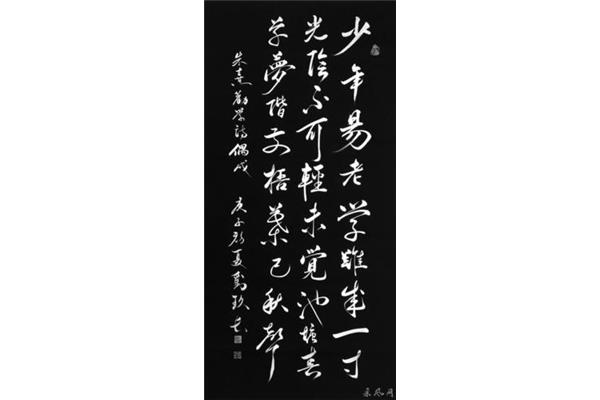 少年易老學難成一寸
光陰不可輕未覺池塘春
草夢階前梧葉已秋聲
朱熹勸學詩偶成 庚子初夏